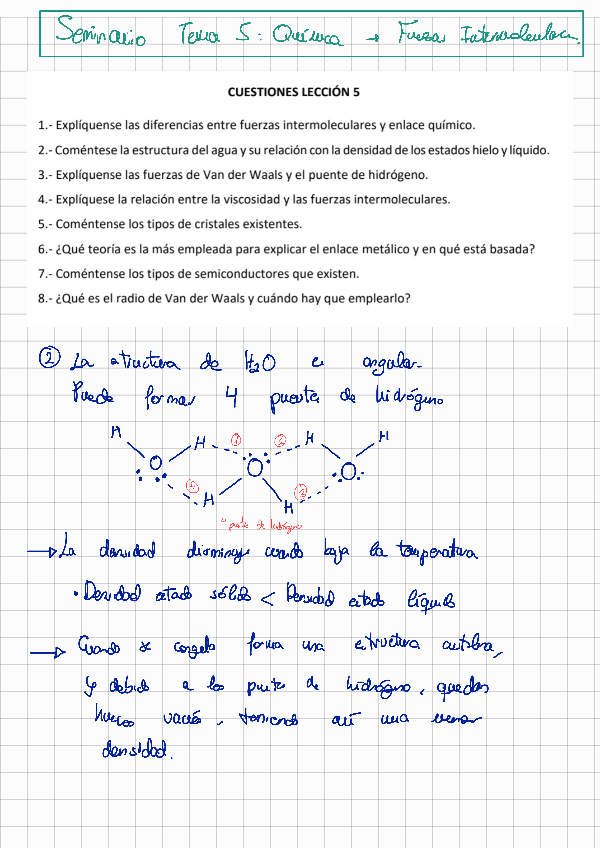 Seminario Tema 5: Química → Fuerzas Intermoleculares.
CUESTIONES LECCIÓN 5
1.- Explíquense las diferencias entre fuerzas intermoleculares y enlace químico.
2.- Coméntese la estructura del agua y su relación con la densidad de los estados hielo y líquido.
3.- Explíquense las fuerzas de Van der Waals y el puente de hidrógeno.
4.- Explíquese la relación entre la viscosidad y las fuerzas intermoleculares.
5.- Coméntense los tipos de cristales existentes.
6.- ¿Qué teoría es la más empleada para explicar el enlace metálico y en qué está basada?
7.- Coméntense los tipos de semiconductores que existen.
8.- ¿Qué es el radio de Van der Waals y cuándo hay que emplearlo?
② La estructura de H₂O es angular.
Puede formar 4 puentes de hidrógeno
H H ① ② H H
O O O
④ H H ③
4 puentes de hidrógeno
→ La densidad disminuye cuando baja la temperatura
• Densidad estado sólido < Densidad estado líquido
→ Cuando se congela forma una estructura
y debido a los puentes de hidrógeno, quedan
huecos vacíos, teniendo así una menor
densidad.